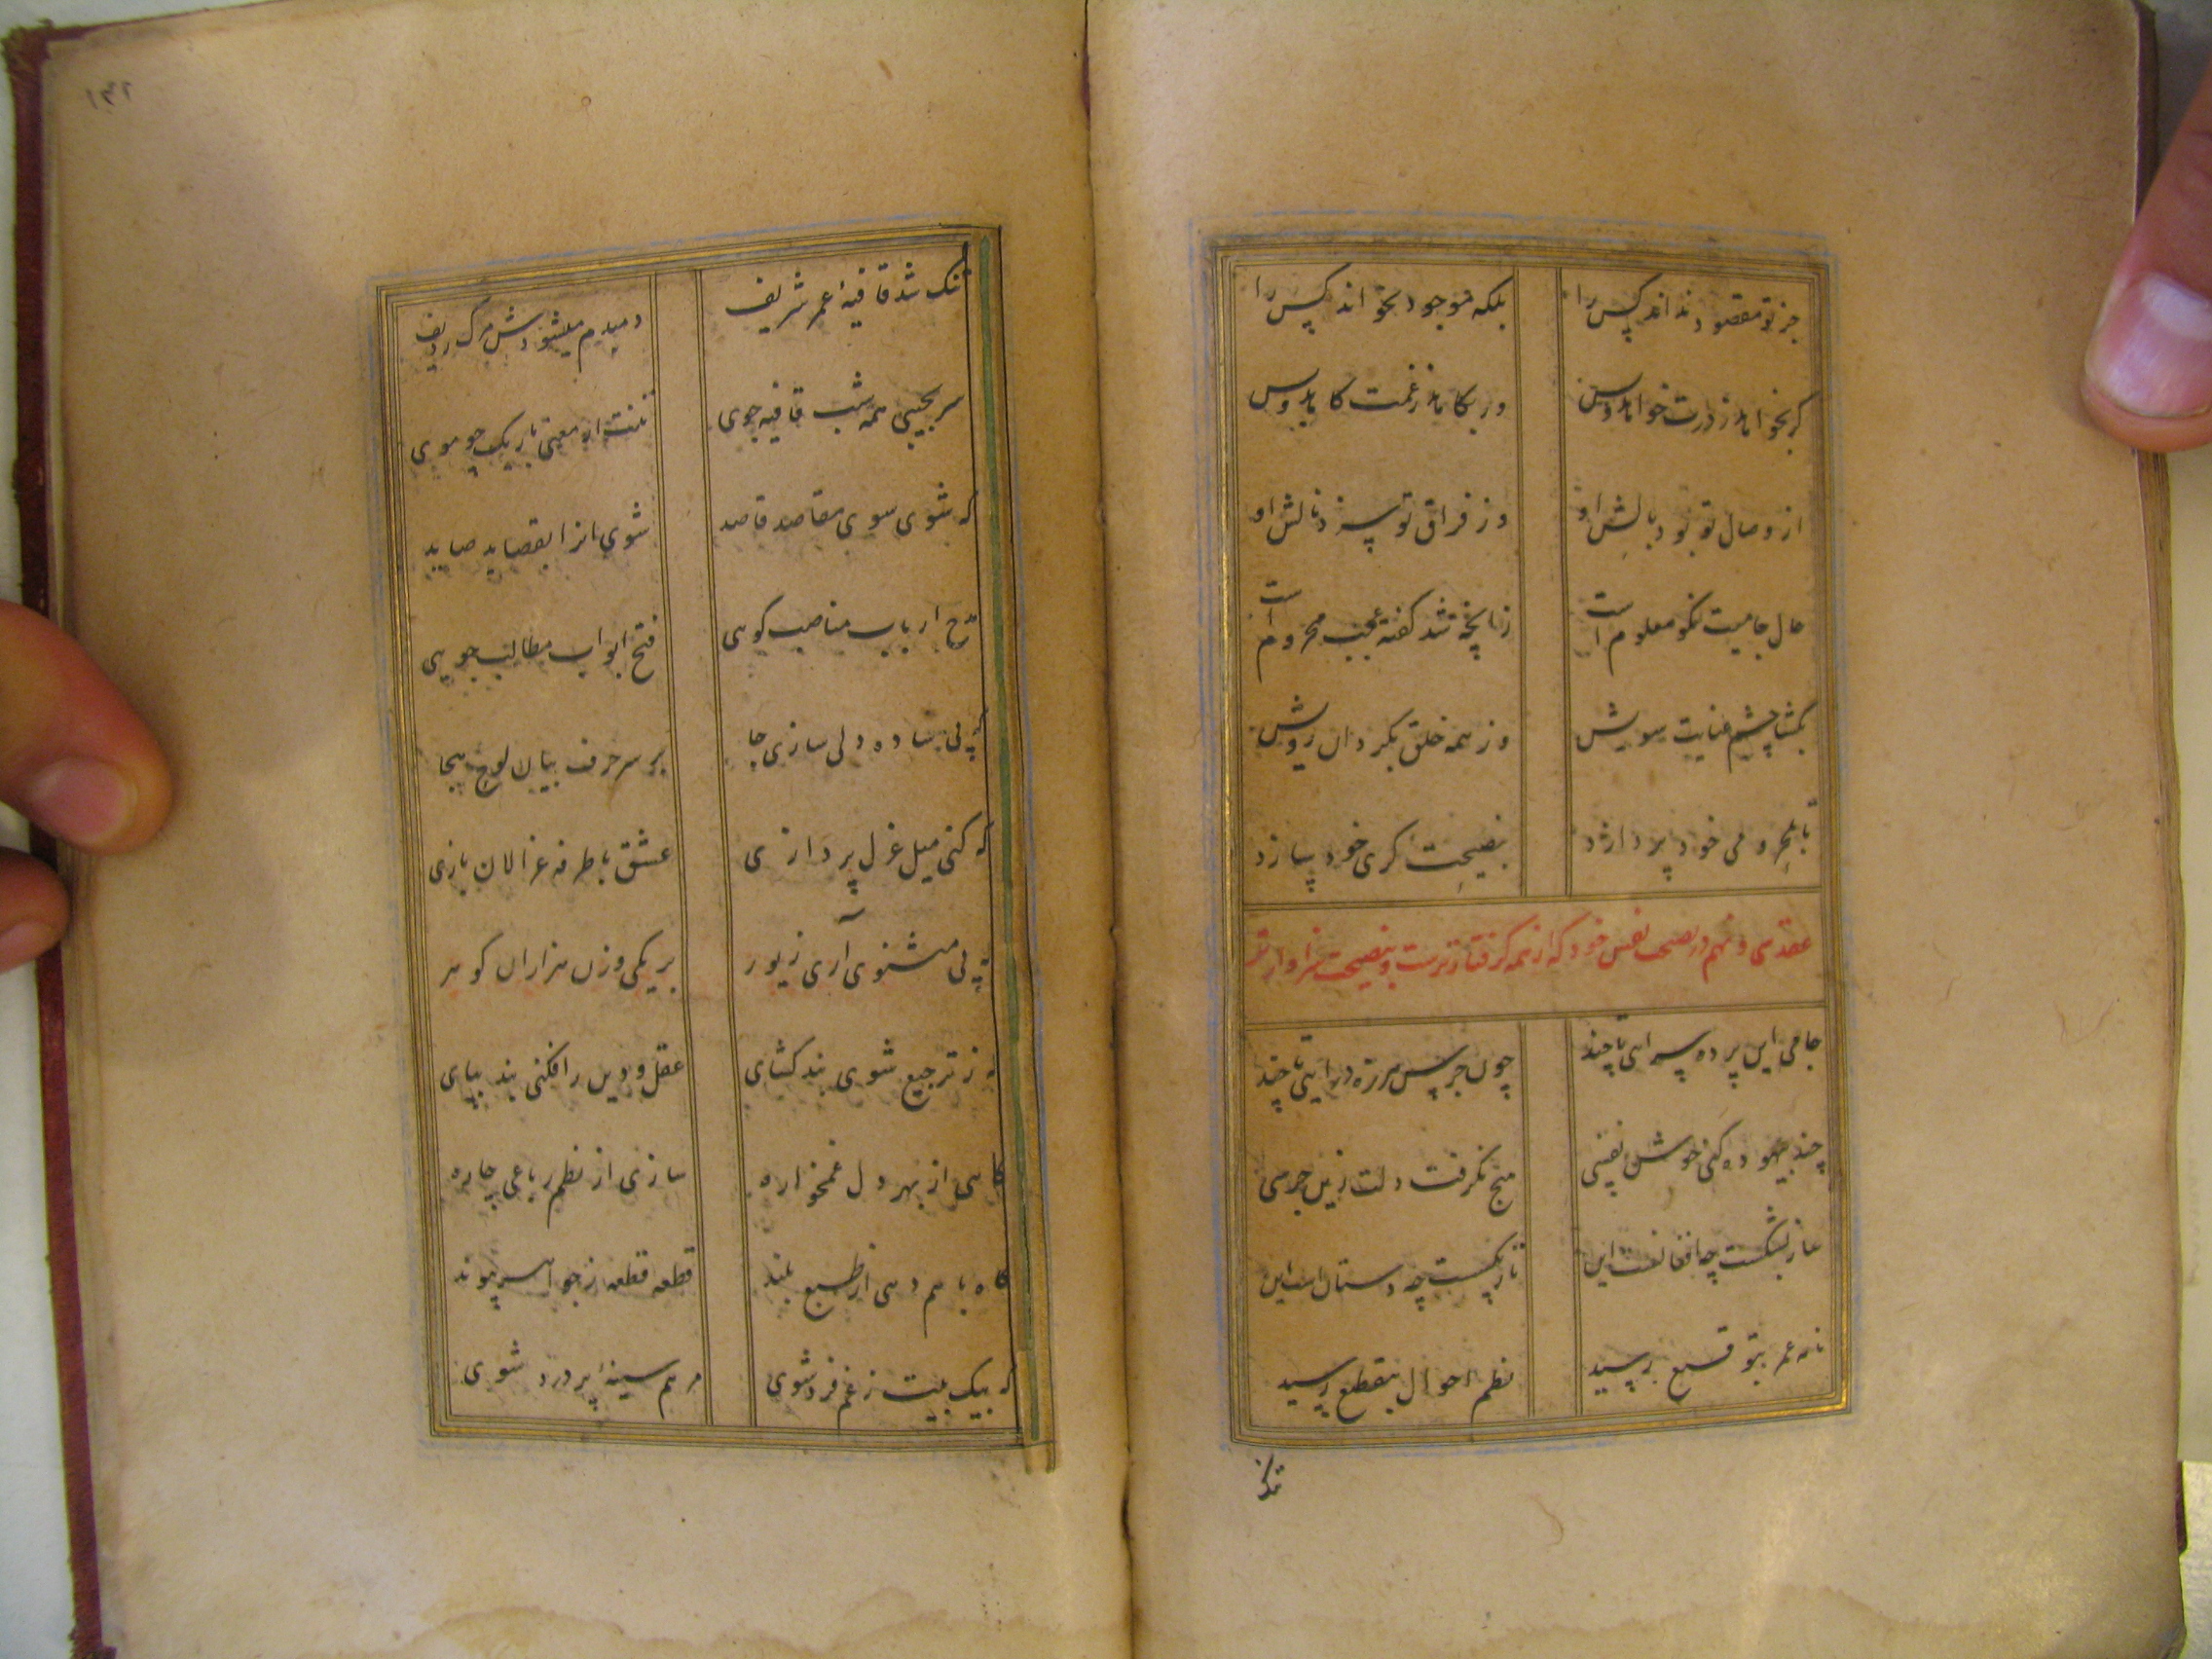 جز تو مقصود نداند کس را بلکه موجود نخواند کس را
گر بخواهد ز درت خواهد و بس ور بکاهد ز غمت کاهد و بس
از وصال تو بود بالش او وز فراق تو سزد نالش او
حال جامیت نکو معلوم است زانچه شد گفته عجب محروم است
بگشا چشم عنایت سویش وز همه خلق بگردان رویش
تا بمحرومی خود پردازد بنصیحت گری خود سازد
عقد سی و نهم در نصیحت نفس خود که از همه گرفتارترست و بنصیحت سزاوارتر
جامی این پرده سرایی تا چند چون جرس هرزه درایی تا چند
چند بیهوده کنی خوش نفسی هیچ نگرفت دلت زین جرسی
ساز بشکست چه افغانست این تار بگسست چه دستان است این
نامه عمر بتوقیع رسید نظم احوال بتقطیع رسید
تنگ
۱۹۲
تنگ شد قافیه عمر شریف دمبدم میشودش مرگ ردیف
سر بجیبی همه شب قافیه جوی تنت از معنی باریک چو موی
که شوی سوی مقاصد قاصد شوی انرا بقصاید صاید
مدح ارباب مناصب گویی فتح ابواب مطالب جویی
گه پی ساده دلی سازی جا بر سر حرف بیان لوح هجا
گه کنی میل غزل پردازی عشق با طرفه غزالان بازی
گه پی مثنوی آری زیور بر یکی وزن هزاران گوهر
گه ز ترجیع شوی بند گشای عقل و دین را فکنی بند بپای
گاهی از بهر دل غمخواره سازی از نظم رباعی چاره
گاه با هم دهی از طبع بلند قطعه قطعه ز جواهر پیوند
گه بیک بیت ز غم فرد شوی مرهم سینه پر درد شوی